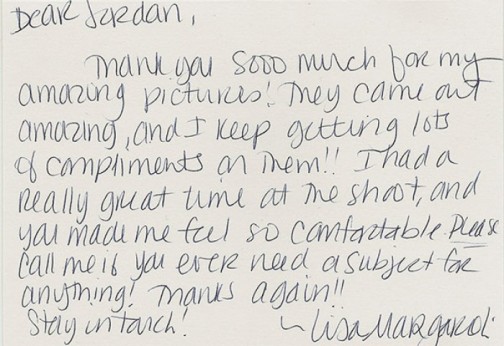 Dear Jordan,
Thank you sooo much for my
amazing pictures! They came out
amazing, and I keep getting lots
of compliments on them!! I had a
really great time at the shoot, and
you made me feel so comfortable. Please
call me if you ever need a subject for
anything! Thanks again!!
Stay in touch! ~ Lisa Margaroli